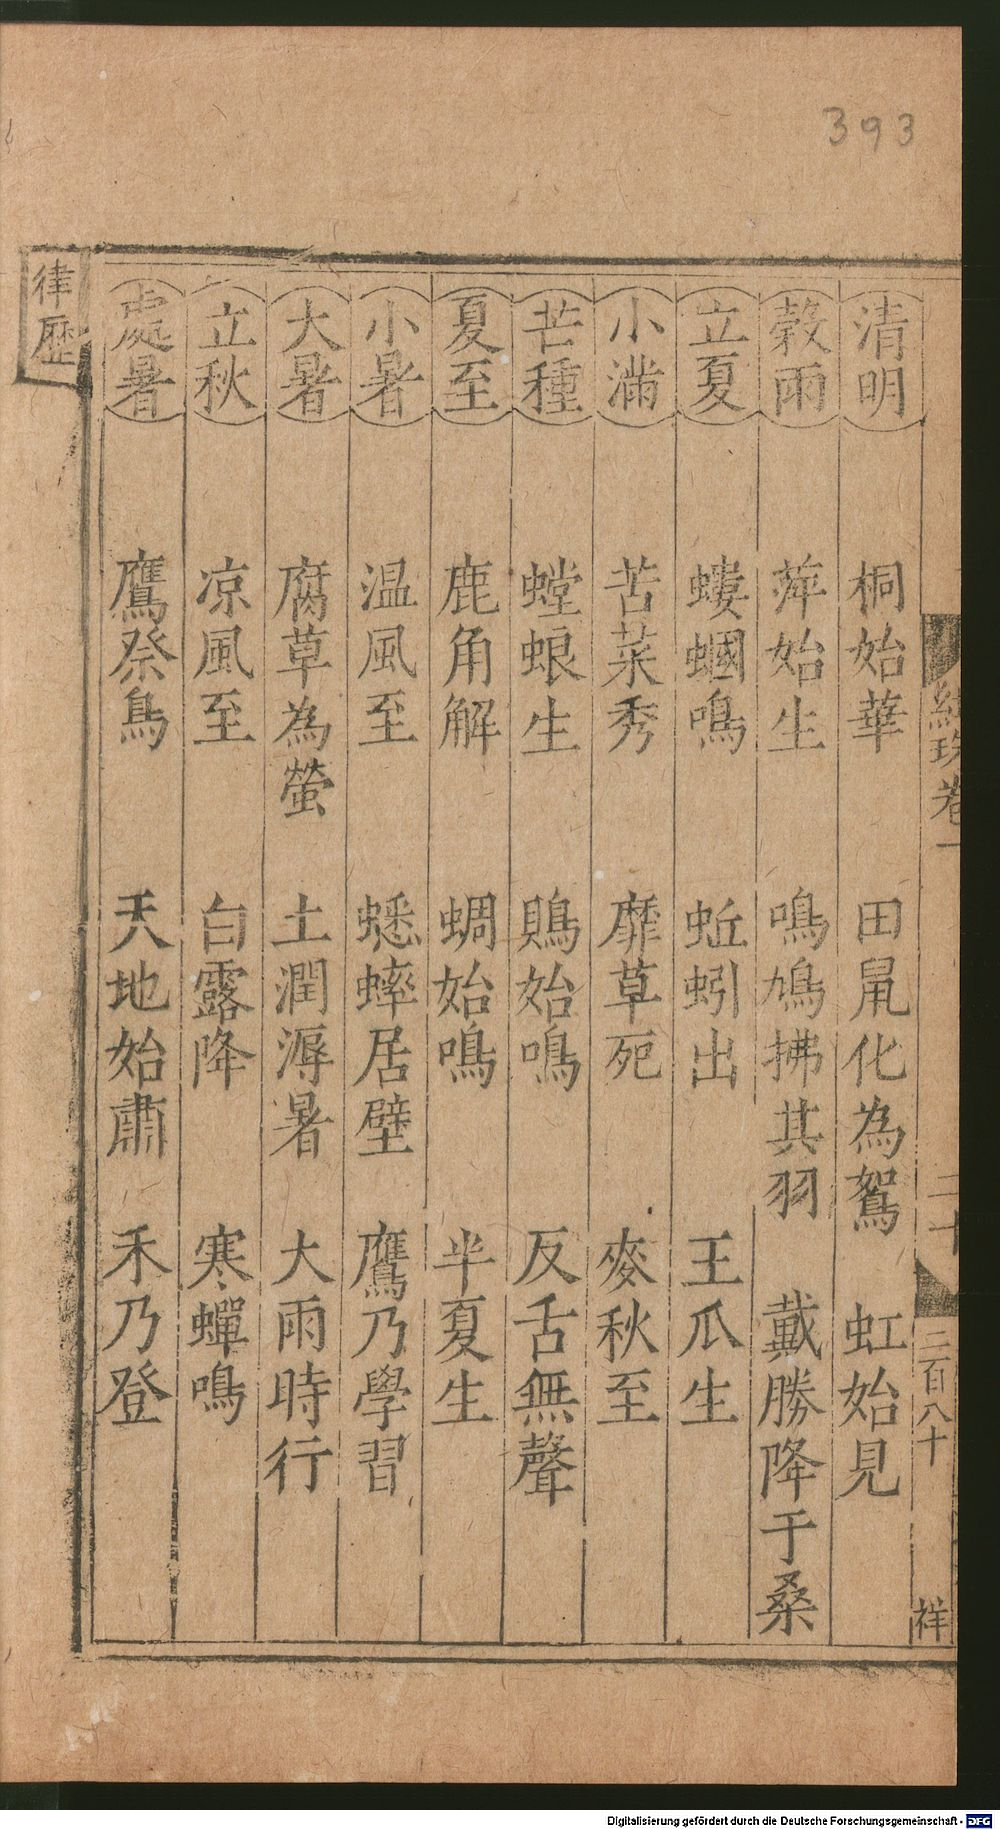 393
清明 桐始華 田鼠化為鴽 虹始見
穀雨 萍始生 鳴鳩拂其羽 戴勝降于桑
立夏 螻蟈鳴 蚯蚓出 王瓜生
小滿 苦菜秀 靡草死 麥秋至
芒種 螳蜋生 鵙始鳴 反舌無聲
夏至 鹿角解 蜩始鳴 半夏生
小暑 温風至 蟋蟀居壁 鷹乃學習
大暑 腐草為螢 土潤溽暑 大雨時行
立秋 凉風至 白露降 寒蟬鳴
處暑 鷹祭鳥 天地始肅 禾乃登
律歷
卷一 二十 二百八十 祥
Digitalisierung gefördert durch die Deutsche Forschungsgemeinschaft - DFG